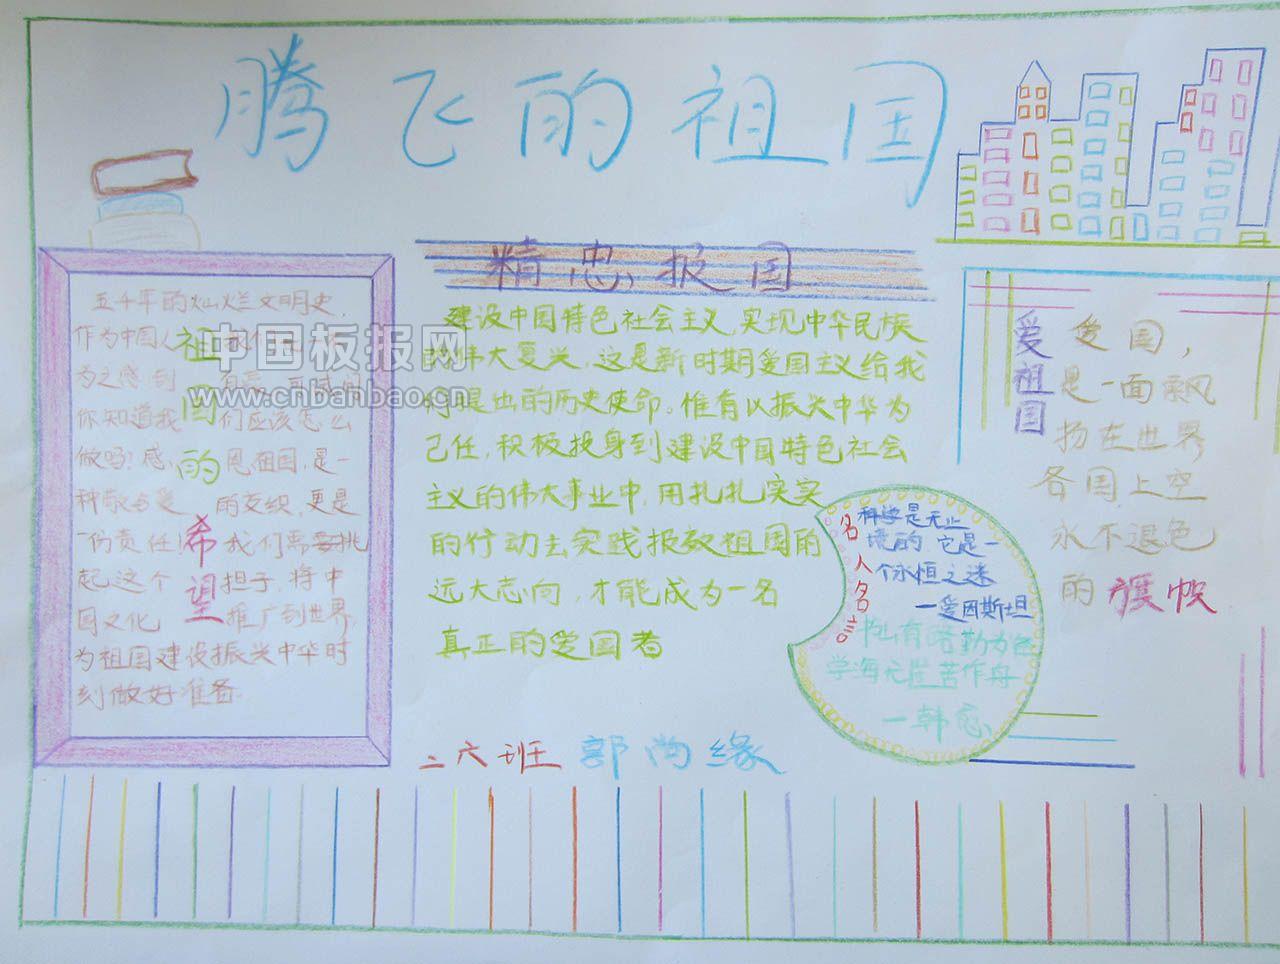 腾飞的祖国
祖国的希望
五千年的灿烂文明史,
作为中国人
为之感到
你知道我们应该怎么
做吗?感恩祖国,是一
种
的交织,更是
一份责任!我们需要挑
起这个担子,将中
国文化推广到世界,
为祖国建设振兴中华时
刻做好准备.
精忠报国
建设中国特色社会主义,实现中华民族
的伟大复兴,这是新时期爱国主义给我
们提出的历史使命。惟有以振兴中华为
己任,积极投身到建设中国特色社会
主义的伟大事业中,用扎扎实实
的行动去实践报效祖国的
远大志向,才能成为一名
真正的爱国者
名人名言
科学是无止
境的,它是一
个永恒之迷
—爱因斯坦
书山有路勤为径
学海无崖苦作舟
—韩愈
爱祖国
爱国,
是一面飘
扬在世界
各国上空
永不退色
的旗帜
二六班 郭尚缘
中国板报网
www.cnbanbao.cn